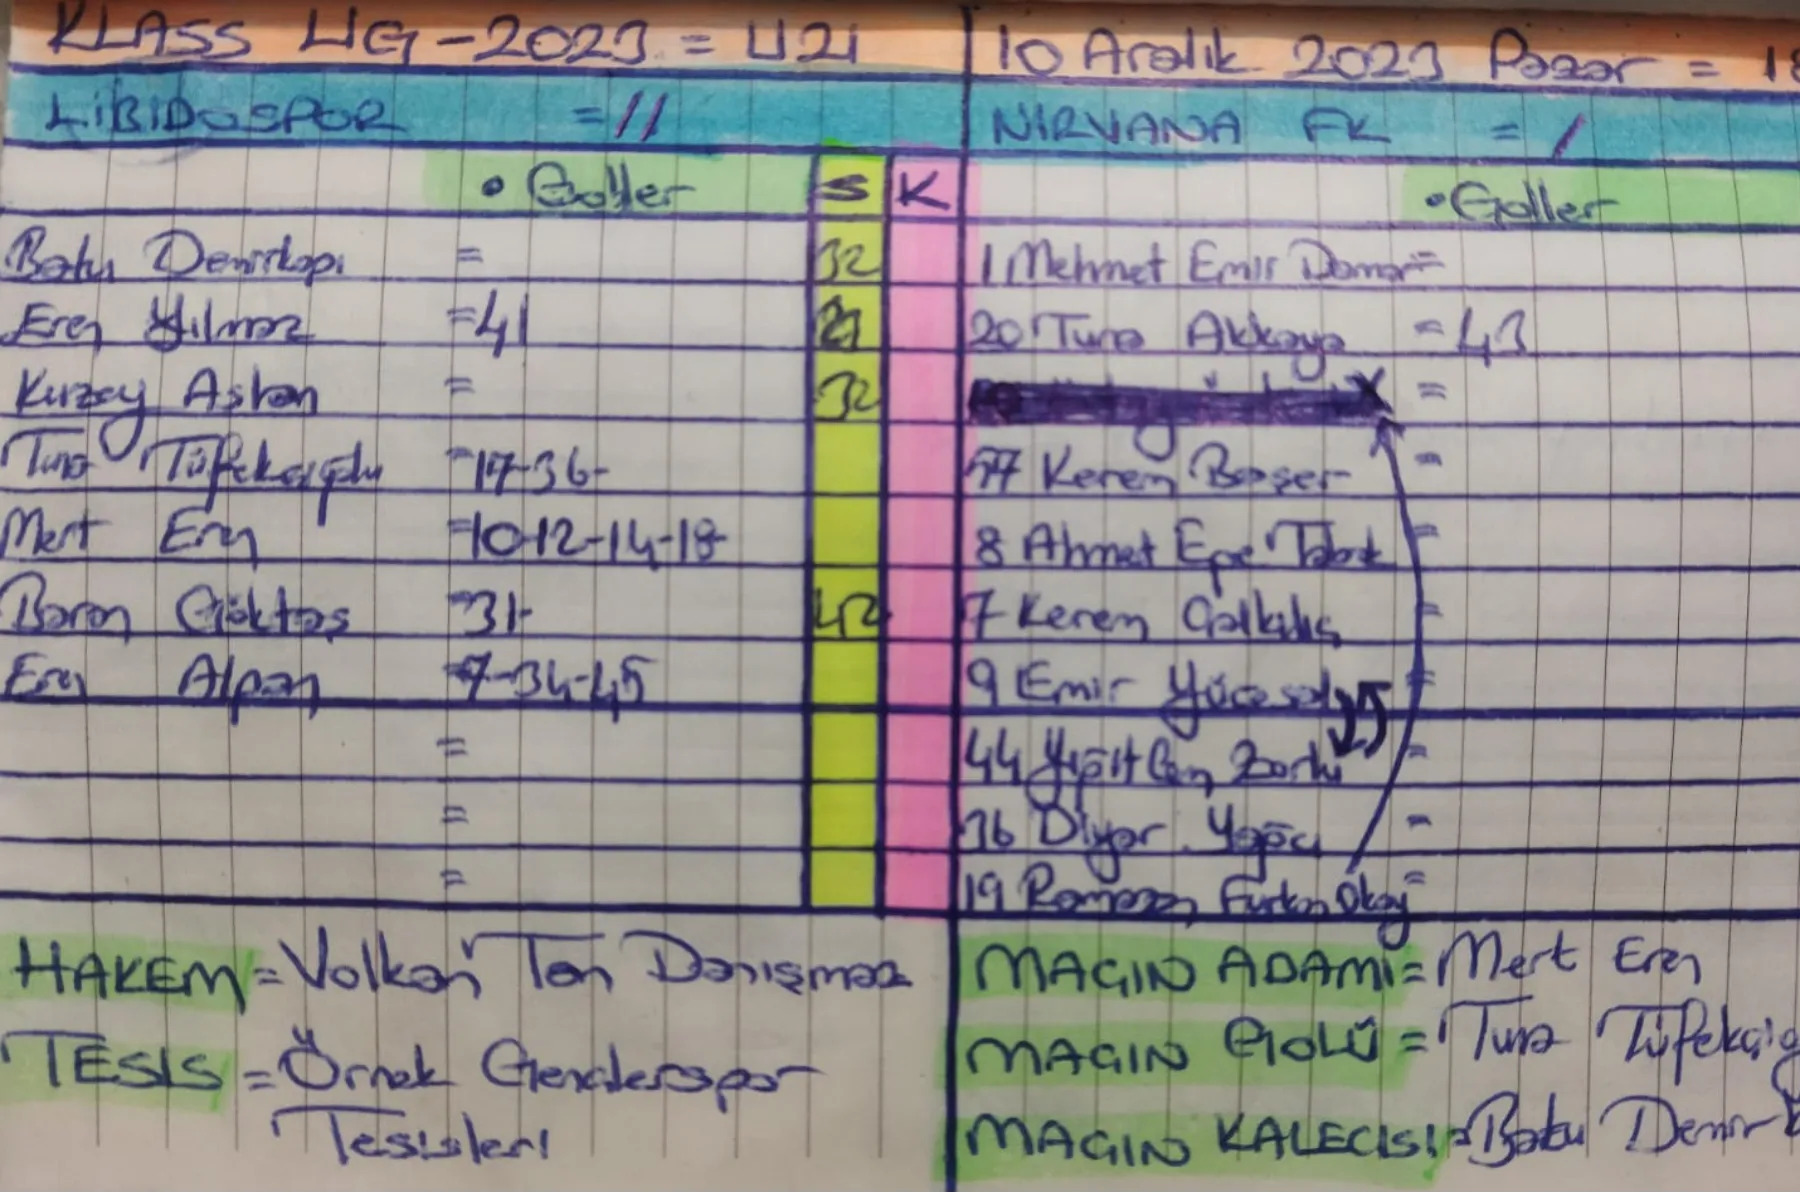 KLASS LİG-2023 = U21
10 Aralık 2023 Pazar = 18
LİBİDOSPOR = 11
NİRVANA FK = 1
• Goller S K
• Goller
Batu Demirkapı = 32
1 Mehmet Emir Damar =
Eren Yılmaz = 41 21
20 Tuna Akkaya = 43
Kuzey Aslan = 32
X =
Tuna Tüfekçioğlu = 17-36-
77 Keren Başer =
Mert Eren = 10-12-14-18-
8 Ahmet Ege Tabak =
Baran Göktaş = 31- 42
7 Kerem Çalkılıç =
Eren Alpan = 7-34-45
9 Emir Yücesoy =
=
44 Yiğit Can Zorlu =
=
36 Diyar Yağcı =
=
19 Ramazan Furkan Okay =
HAKEM = Volkan Tan Danışmaz
TESİS = Örnek Genclerspor
Tesisleri
MAÇIN ADAMI = Mert Eren
MAÇIN GOLÜ = Tuna Tüfekçioğ
MAÇIN KALECİSİ = Batu Demirk